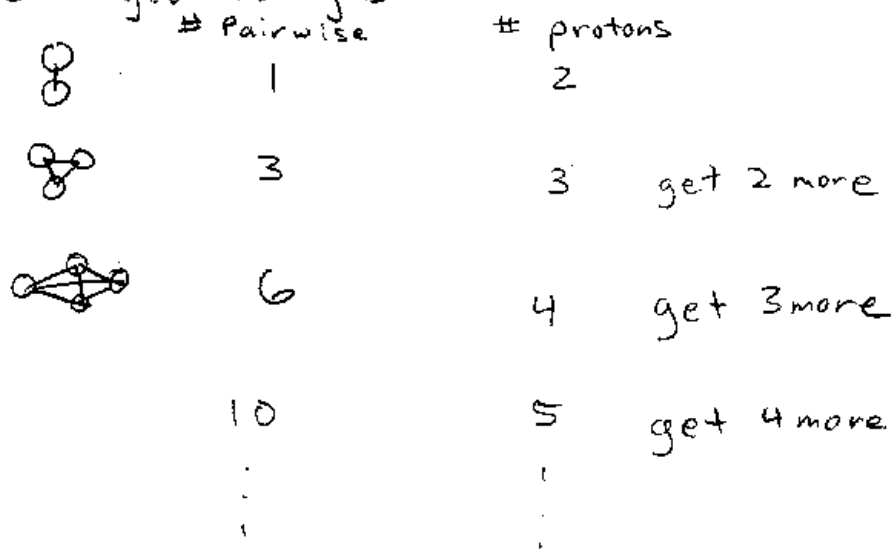 # Pairwise # protons
1 2
3 3 get 2 more
6 4 get 3 more
10 5 get 4 more